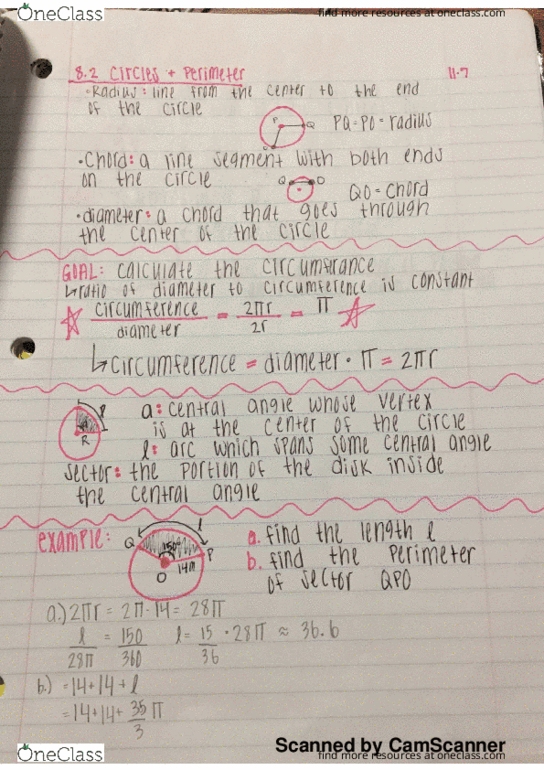 OneClass
find more resources at oneclass.com
8.2 Circles + Perimeter 11-7
·Radius: line from the center to the end
of the circle
P Q
O
PQ=PO=radius
·Chord: a line segment with both ends
on the circle
Q O
QO=chord
·diameter: a chord that goes through
the center of the circle
GOAL: calculate the circumfrance
↳ratio of diameter to circumference is constant
☆ circumference / diameter = 2πr / 2r = π ☆
↳circumference = diameter · π = 2πr
l
a
R
a: central angle whose vertex
is at the center of the circle
l: arc which spans some central angle
sector: the portion of the disk inside
the central angle
example:
l
Q 150° P
14m
O
a. find the length l
b. find the perimeter
of sector QPO
a.) 2πr = 2π·14 = 28π
l / 28π = 150 / 360 l = 15 / 36 · 28π ≈ 36.6
b.) =14+14+l
=14+14+ 35/3 π
Scanned by CamScanner
OneClass
find more resources at oneclass.com